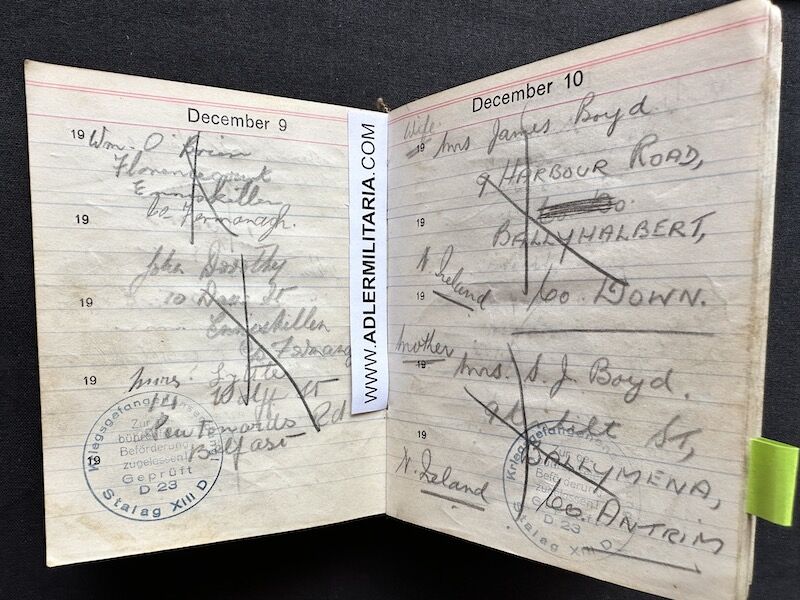 December 9
19 Wm. O'
Florencecourt
Enniskillen
19 Co Fermanagh.
John Dorothy
10 St
19 Enniskillen
Co Fermanagh
19
Wolff St
Newtownards Rd
19 Belfast
Kriegsgefangenen
Zur
Beförderung
zugelassen
Geprüft
D 23
Stalag XIII D
WWW.ADLERMILITARIA.COM
December 10
Wife
19 Mrs James Boyd
9 HARBOUR ROAD,
19
BALLYHALBERT,
N. Ireland
19 Co. DOWN.
Mother
19 Mrs. S. J. Boyd.
St,
19 BALLYMENA,
N. Ireland Co. ANTRIM
Kriegsgefangenen
Beförderung
D 23
Stalag XIII D